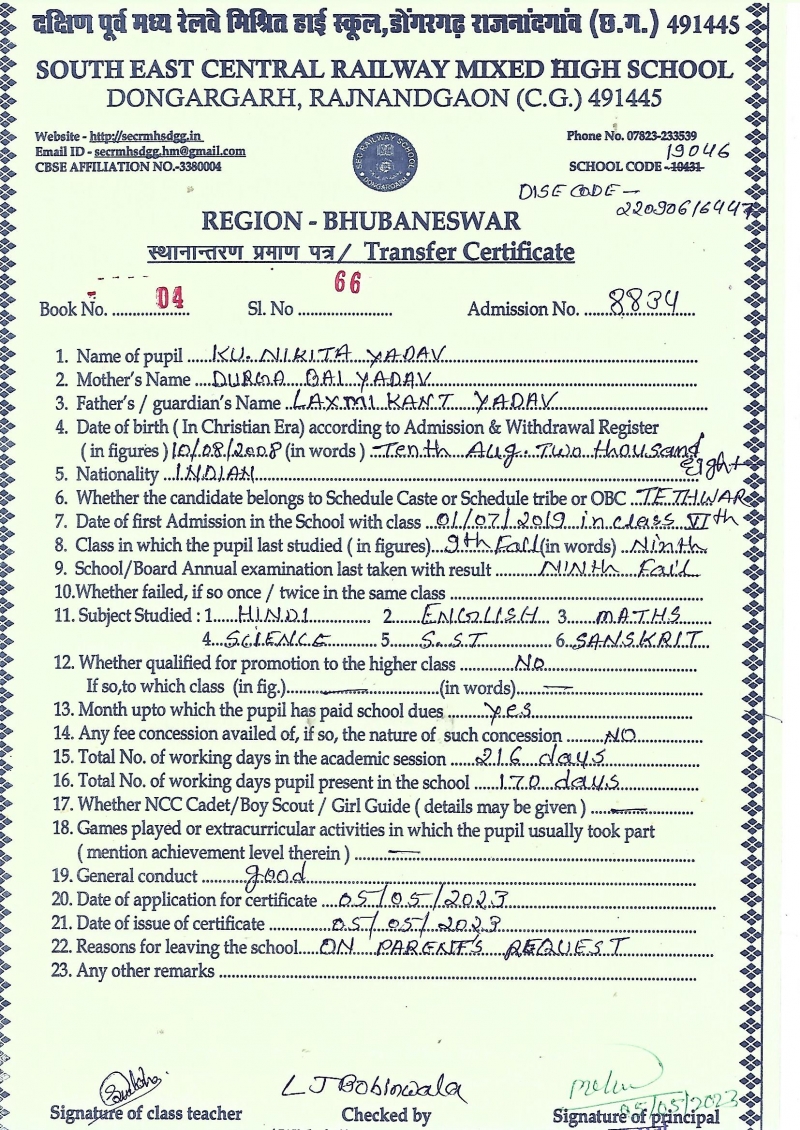 दक्षिण पूर्व मध्य रेलवे मिश्रित हाई स्कूल,डोंगरगढ़ राजनांदगांव (छ.ग.) 491445
SOUTH EAST CENTRAL RAILWAY MIXED HIGH SCHOOL
DONGARGARH, RAJNANDGAON (C.G.) 491445
Website - http://secrmhsdgg.in
Phone No. 07823-233539
Email ID - secrmhsdgg.hm@gmail.com
19046
CBSE AFFILIATION NO.-3380004
SCHOOL CODE - 10431
SEC RAILWAY SCHOOL DONGARGARH
DISE CODE - 
REGION - BHUBANESWAR
स्थानान्तरण प्रमाण पत्र / Transfer Certificate
Book No. 04 Sl. No 66 Admission No. 8834
1. Name of pupil KU. NIKITA YADAV
2. Mother's Name DURGA BAI YADAV
3. Father's / guardian's Name LAXMI KANT YADAV
4. Date of birth ( In Christian Era) according to Admission & Withdrawal Register
( in figures ) 10/08/2008 (in words ) Tenth Aug. Two thousand
Eight
5. Nationality INDIAN
6. Whether the candidate belongs to Schedule Caste or Schedule tribe or OBC TETHWAR
7. Date of first Admission in the School with class 01/07/2019 in class VIth
8. Class in which the pupil last studied ( in figures) 9th Fail (in words) Ninth
9. School/Board Annual examination last taken with result NINth Fail
10.Whether failed, if so once / twice in the same class
11. Subject Studied : 1 HINDI 2 ENGLISH 3 MATHS
4 SCIENCE 5 S.ST 6 SANSKRIT
12. Whether qualified for promotion to the higher class NO
If so,to which class (in fig.) — (in words) —
13. Month upto which the pupil has paid school dues yes
14. Any fee concession availed of, if so, the nature of such concession NO
15. Total No. of working days in the academic session 216 days
16. Total No. of working days pupil present in the school 170 days
17. Whether NCC Cadet/Boy Scout / Girl Guide ( details may be given ) —
18. Games played or extracurricular activities in which the pupil usually took part
( mention achievement level therein ) —
19. General conduct good
20. Date of application for certificate 05/05/2023
21. Date of issue of certificate 05/05/2023
22. Reasons for leaving the school ON PARENT'S REQUEST
23. Any other remarks
L J Bobinwala
05/05/2023
Signature of class teacher Checked by Signature of principal